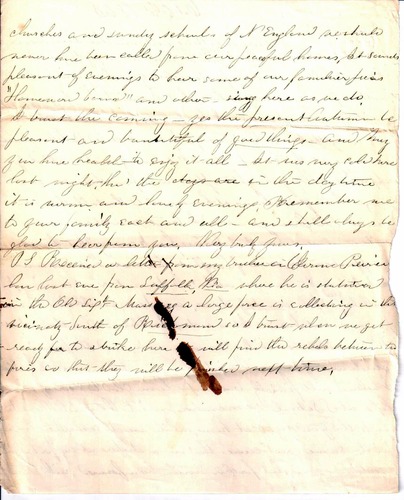 churches and sunday schools of N England we should
never have been called from our peaceful homes, it sounds
pleasant of evenings to hear some of our familiar
"Homeward bound" and other sung here as we do,
I trust the coming yes the present autumn be
pleasant and bountiful of good things and may
you have health to enjoy it all let us very cold here
last night, but the days are in the day time
it is warm and lovely evenings Remember me
to your family each and all and shall always be
glad to hear from you, Very truly yours,
P.S. Received a letter from my brother in
law last eve from Suffolk Va where he is stationed
in the Old 6th Mass a large force is collecting in the
vicinity South of Richmond so I trust when we get
ready for to strike here will find the rebels between two
fires so that they will be next time,